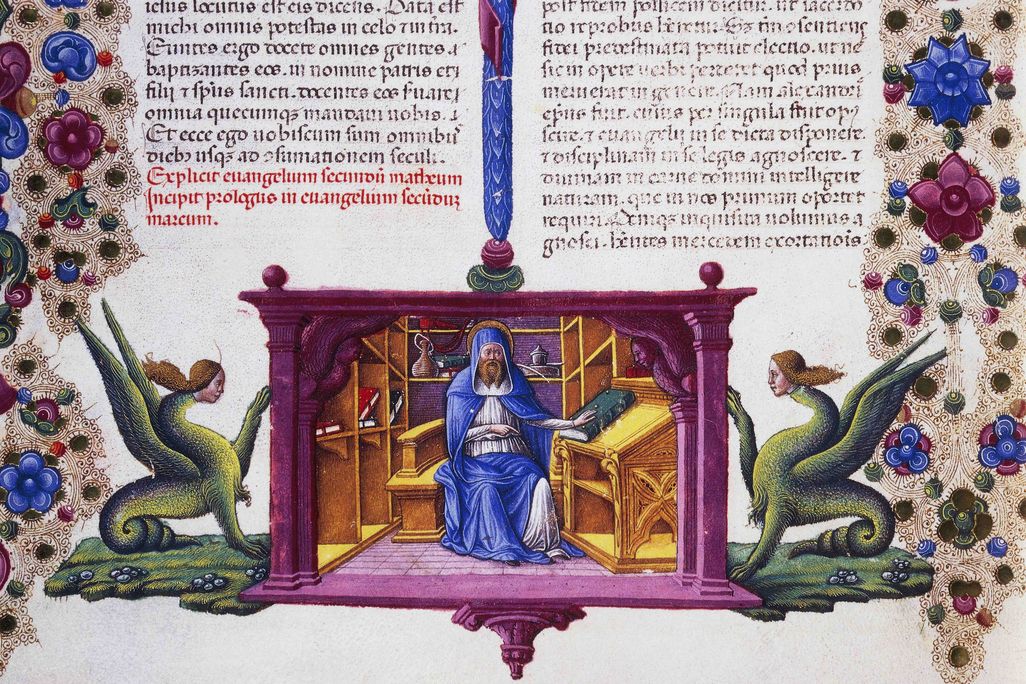 iesus locutus est eis dicens. Data est
michi omnis potestas in celo ⁊ in tr̄a.
Euntes ergo docete omnes gentes. ⁊
baptizantes eos. in nomine patris et
filij ⁊ sp̄us sancti. docentes eos s̄uare
omnia quecumqꝫ mandaui uobis. ⁊
Et ecce ego uobiscum sum omnibꝰ
diebꝫ usqꝫ ad ɔsumationem seculi.
Explicit euangelium secundū matheum
Incipit prologus in euangelium secūduꝫ
marcum.
post fidem pollicem dicitur. ut sacerdo
tio reprobus h̄eretur.
fidei predestinata potuit electio. ut ne
sic in opere uerbi perderet quod prius
meruerat in genere. Nam alexandri
ep̄us fuit. cuius per singula
⁊ euangelij in se dicta disponere.
⁊ disciplinam in se legis agnoscere. ⁊
diuinam in carne domini intelligere
naturam. que in nos primum oportet
requiri. inquisita uolumus a
gnosci. h̄entes mercedem exortatiōis